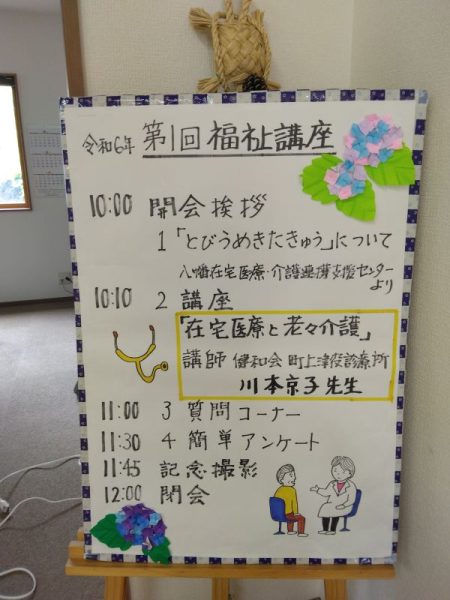 令和6年 第1回福祉講座
10:00 開会挨拶
1「とびうめきたきゅう」について
八幡在宅医療・介護連携支援センター
より
10:10 2 講座
「在宅医療と老々介護」
講師 健和会 町上津役診療所
川本京子先生
11:00 3 質問コーナー
11:30 4 簡単アンケート
11:45 記念撮影
12:00 閉会